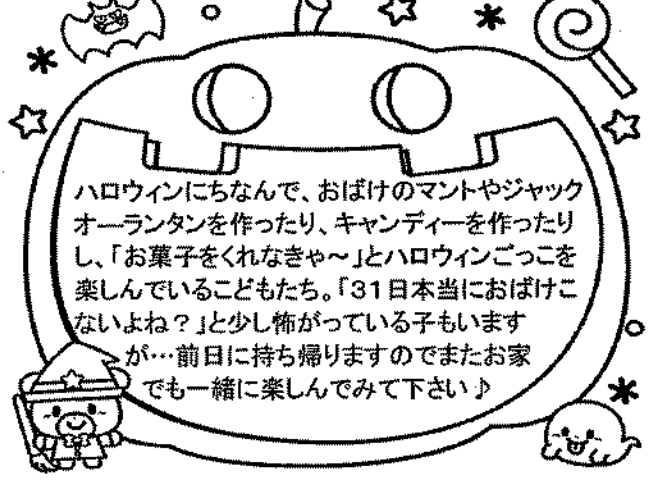 ハロウィンにちなんで、おばけのマントやジャック
オーランタンを作ったり、キャンディーを作ったり
し、「お菓子をくれなきゃ～」とハロウィンごっこを
楽しんでいるこどもたち。「31日本当におばけこ
ないよね？」と少し怖がっている子もいます
が…前日に持ち帰りますのでまたお家
でも一緒に楽しんでみて下さい♪